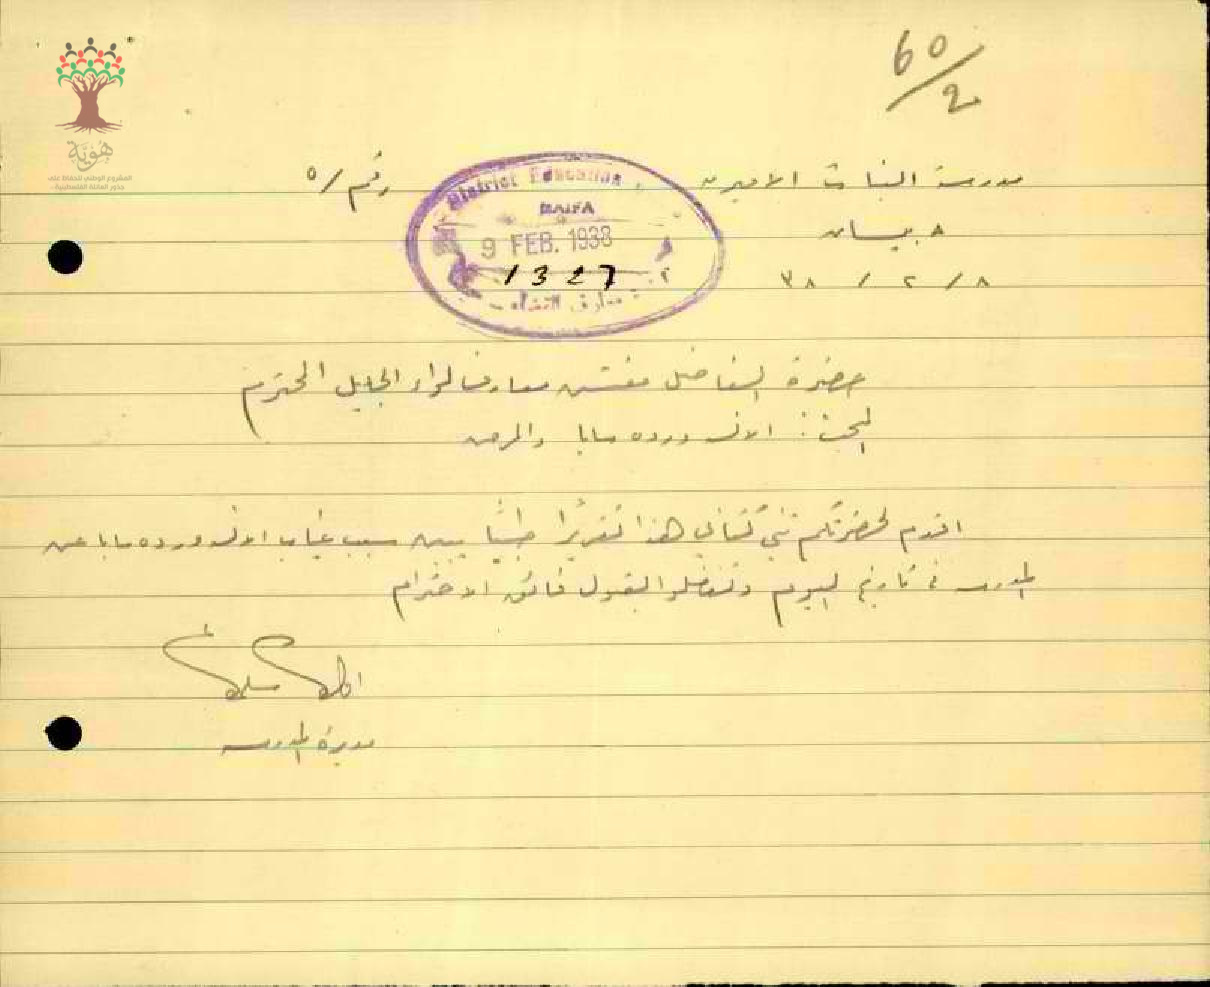 60/2
هوية
المشروع الوطني للحفاظ على
جذور العائلة الفلسطينية
مدرسة البنات الاميرية رقم / ٥
بيسان
٨ / ٢ / ٣٨
District Education
HAIFA
9 FEB. 1938
1327
معارف اللواء
حضرة الفاضل مفتش معارف لواء الجليل المحترم
البحث: الانسة وردة سابا والمرض
اقدم لحضرتكم بكتابي هذا تقريرًا طبيًا يبين سبب غياب الانسة وردة سابا عن
المدرسة في تاريخ اليوم وتفضلوا بقبول فائق الاحترام
مديرة المدرسة